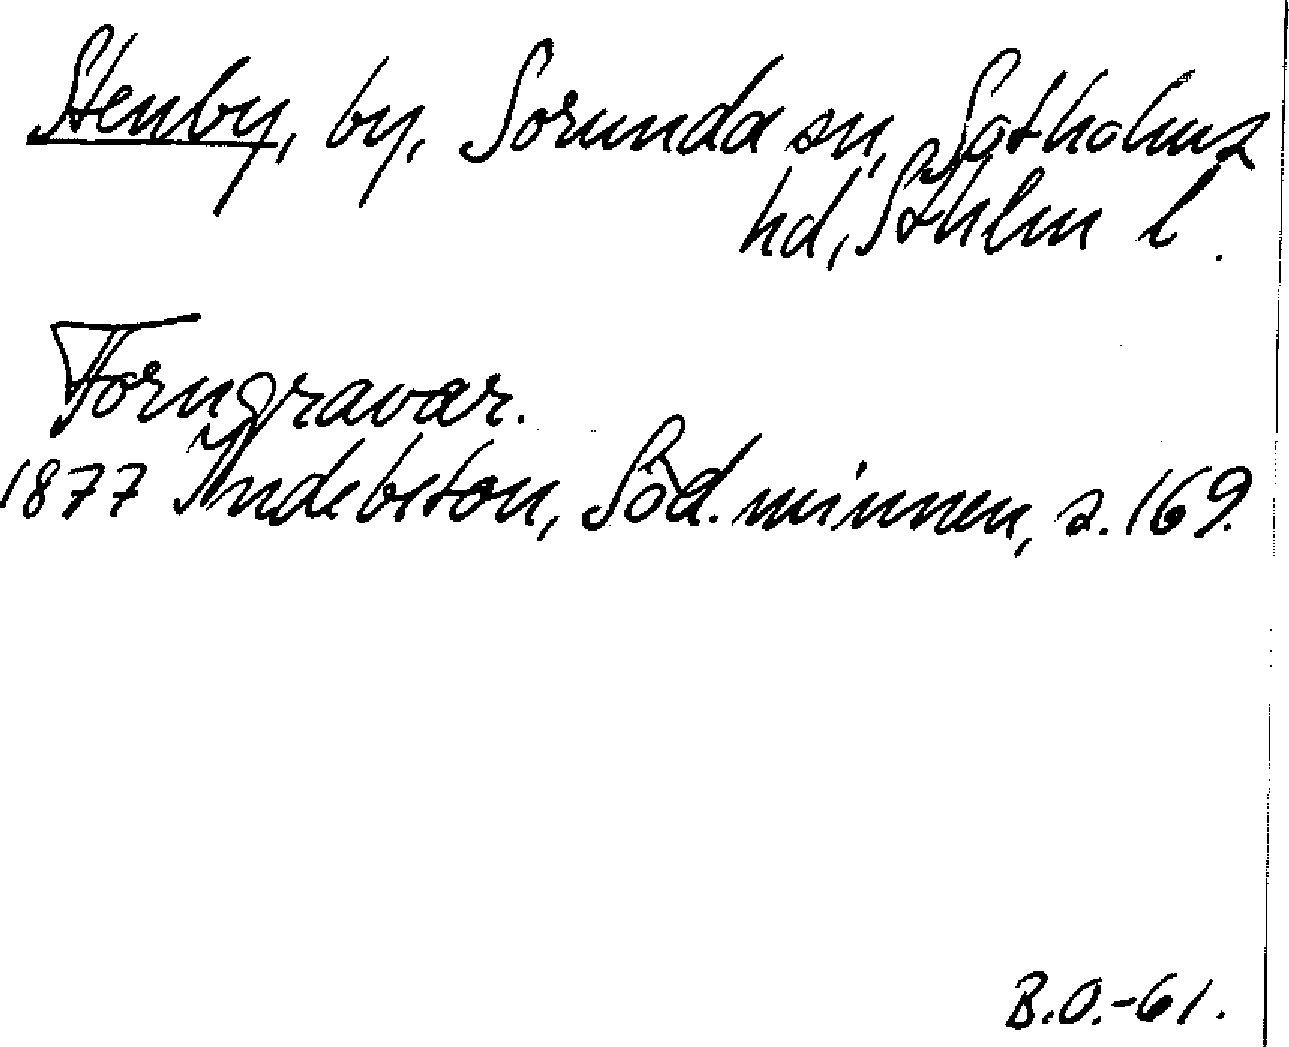 Stenby, by, Sorunda sn, Sotholms
hd, Sthlm l.
Forngravar.
1877 Indebetou, Söd. minnen, s. 169.
B.O.-61.